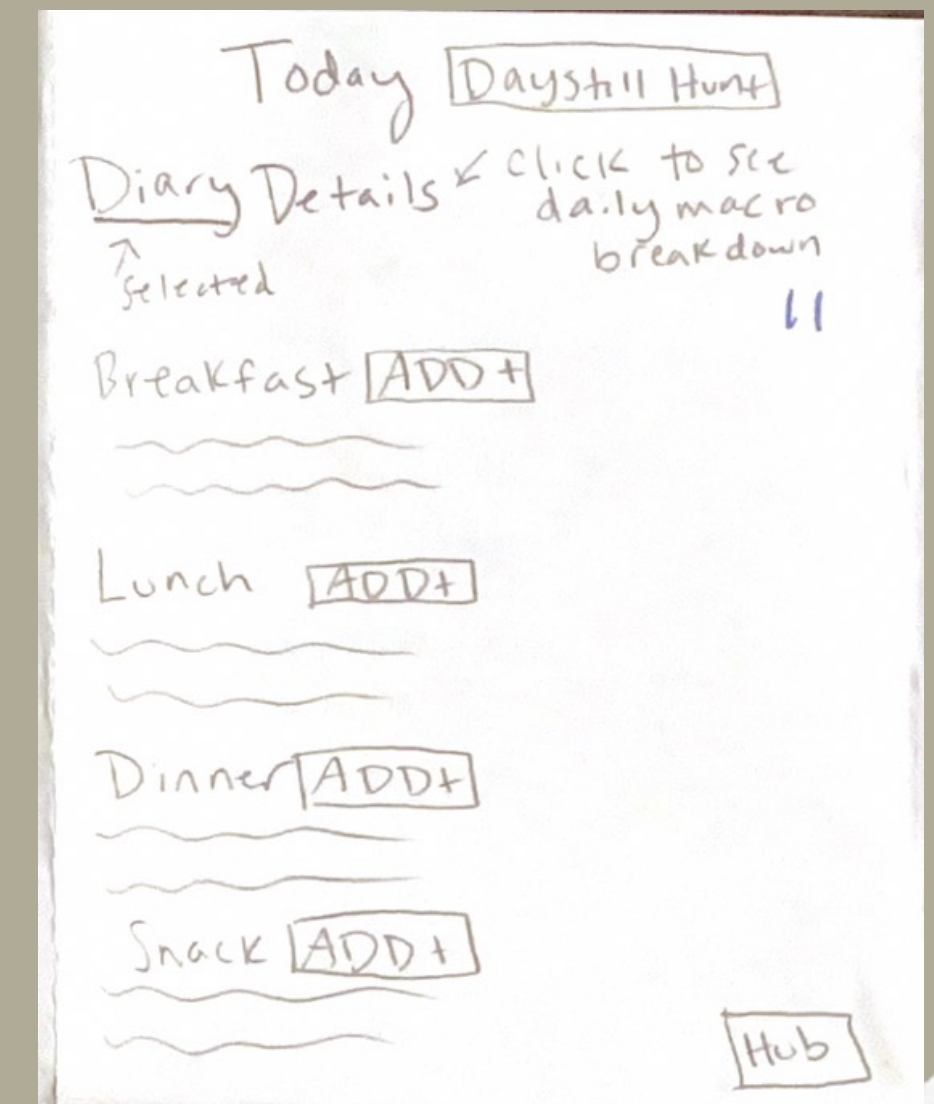 Today Days till Hunt
Diary Details ↙ Click to see
daily macro
breakdown
↑
selected
11
Breakfast ADD +
Lunch ADD+
Dinner ADD+
Snack ADD +
Hub